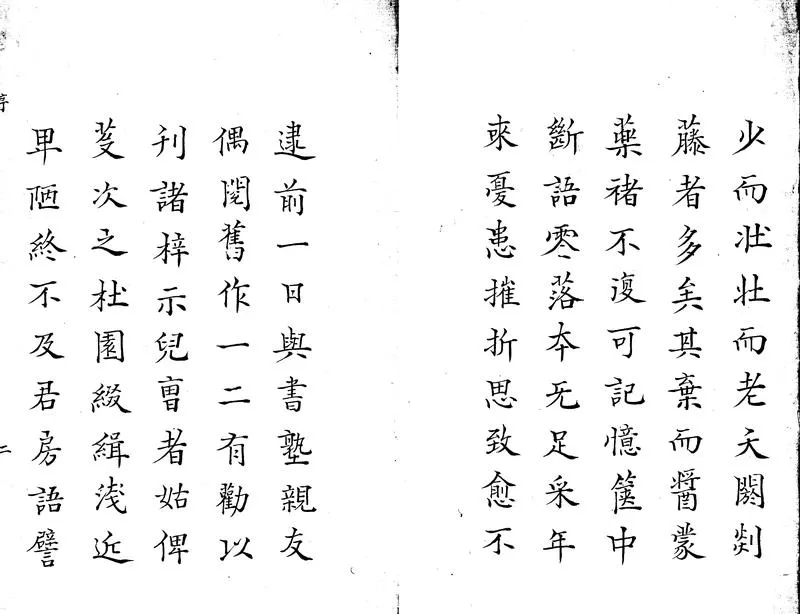 少而壯壯而老夭閼剡
藤者多矣其棄而醬蒙
藥褚不復可記憶篋中
斷語零落本无足采年
來憂患摧折思致愈不
逮前一日與書塾親友
偶閱舊作一二有勸以
刊諸梓示兒曹者姑俾
芟次之杜園綴緝淺近
卑陋終不及君房語譬
二